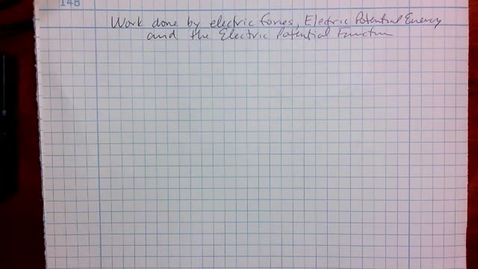 148
Work done by electric forces, Electric Potential Energy
and the Electric Potential function